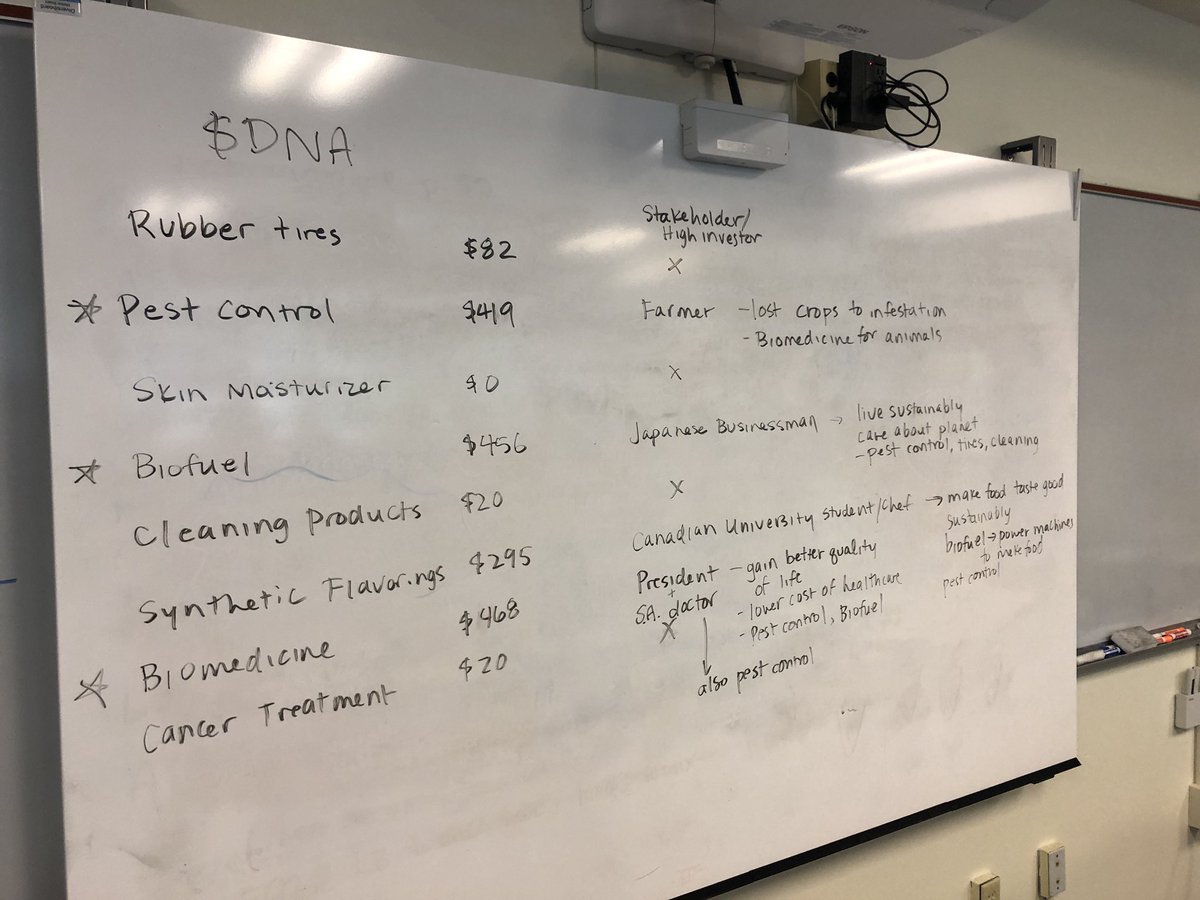 $DNA
Rubber tires $82
Pest control $419
Skin Moisturizer $0
Biofuel $456
Cleaning Products $20
Synthetic Flavorings $295
Biomedicine $468
Cancer Treatment $20
Stakeholder/
High investor
X
Farmer - lost crops to infestation
- Biomedicine for animals
X
Japanese Businessman → live sustainably
care about planet
- pest control, tires, cleaning
X
Canadian University student/chef → make food taste good
sustainably
biofuel → power machines
to make food
pest control
President - gain better quality
of life
+
S.A. doctor - lower cost of healthcare
- Pest control, Biofuel
X
also pest control
EPSON